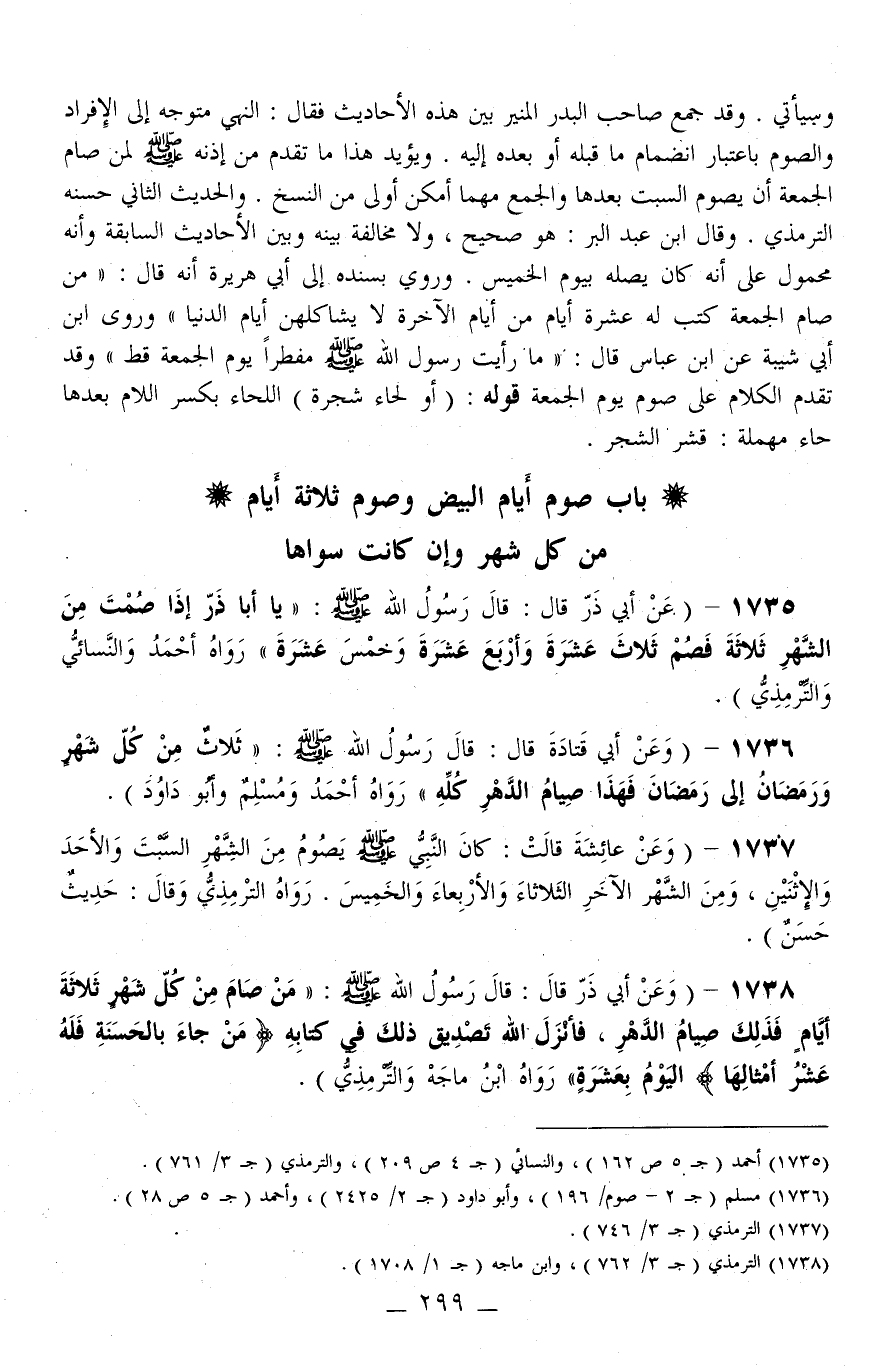 وسيأتي . وقد جمع صاحب البدر المنير بين هذه الأحاديث فقال : النهي متوجه إلى الإفراد
والصوم باعتبار انضمام ما قبله أو بعده إليه . ويؤيد هذا ما تقدم من إذنه ﷺ لمن صام
الجمعة أن يصوم السبت بعدها والجمع مهما أمكن أولى من النسخ . والحديث الثاني حسنه
الترمذي . وقال ابن عبد البر : هو صحيح ، ولا مخالفة بينه وبين الأحاديث السابقة وأنه
محمول على أنه كان يصله بيوم الخميس . وروي بسنده إلى أبي هريرة أنه قال : « من
صام الجمعة كتب له عشرة أيام من أيام الآخرة لا يشاكلهن أيام الدنيا » وروى ابن
أبي شيبة عن ابن عباس قال : « ما رأيت رسول الله ﷺ مفطراً يوم الجمعة قط » وقد
تقدم الكلام على صوم يوم الجمعة قوله : ( أو لحاء شجرة ) اللحاء بكسر اللام بعدها
حاء مهملة : قشر الشجر .
باب صوم أَيام البيض وصوم ثلاثة أَيام
من كل شهر وإن كانت سواها
١٧٣٥ – ( عَنْ أبي ذَرّ قال : قالَ رَسُولُ الله ﷺ : « يا أبا ذَرّ إذَا صُمْتَ مِنَ
الشَّهْرِ ثَلاثَةً فَصُمْ ثَلاثَ عَشَرَةَ وَأرْبَعَ عَشَرَةَ وَخمْسَ عَشَرَةَ » رَوَاهُ أحْمَدُ وَالنَّسائيُّ
وَالتِّرْمِذِيُّ ) .
١٧٣٦ – ( وَعَنْ أبي قَتادَةَ قال : قالَ رَسُولُ الله ﷺ : « ثَلاثٌ مِنْ كُلّ شَهْرٍ
وَرَمَضَانُ إلى رَمَضَانَ فَهَذَا صِيامُ الدَّهْرِ كُلِّهِ » رَوَاهُ أحْمَدُ وَمُسْلِمٌ وأبُو دَاوُدَ ) .
١٧٣٧ – ( وَعَنْ عائِشَةَ قالَتْ : كانَ النَّبِيُّ ﷺ يَصُومُ مِنَ الشَّهْرِ السَّبْتَ وَالأحَدَ
وَالإِثْنَيْنِ ، وَمِنَ الشَّهْرِ الآخَرِ الثَّلاثاءَ وَالأرْبعاءَ وَالخَمِيسَ . رَوَاهُ التِّرْمِذِيُّ وَقالَ : حَدِيثٌ
حَسَنٌ ) .
١٧٣٨ – ( وَعَنْ أبي ذَرّ قالَ : قالَ رَسُولُ الله ﷺ : « مَنْ صَامَ مِنْ كُلّ شَهْرٍ ثَلاثَةَ
أيَّامٍ فَذَلِكَ صِيامُ الدَّهْرِ ، فأنْزَلَ الله تَصْدِيق ذلكَ فِي كتابِهِ ﴿ مَنْ جاءَ بالحَسَنَةِ فَلَهُ
عَشْرُ أمْثالِهَا ﴾ اليَوْمُ بِعَشَرَةٍ» رَوَاهُ ابْنُ ماجَهْ وَالتِّرْمِذِيُّ ) .
(١٧٣٥) أحمد ( جـ ٥ ص ١٦٢ ) ، والنسائي ( جـ ٤ ص ٢٠٩ ) ، والترمذي ( جـ ٣/ ٧٦١ ) .
(١٧٣٦) مسلم ( جـ ٢ – صوم/ ١٩٦ ) ، وأبو داود ( جـ ٢/ ٢٤٢٥ ) ، وأحمد ( جـ ٥ ص ٢٨ ) .
(١٧٣٧) الترمذي ( جـ ٣/ ٧٤٦ ) .
(١٧٣٨) الترمذي ( جـ ٣/ ٧٦٢ ) ، وابن ماجه ( جـ ١/ ١٧٠٨ ) .
— ٢٩٩ —